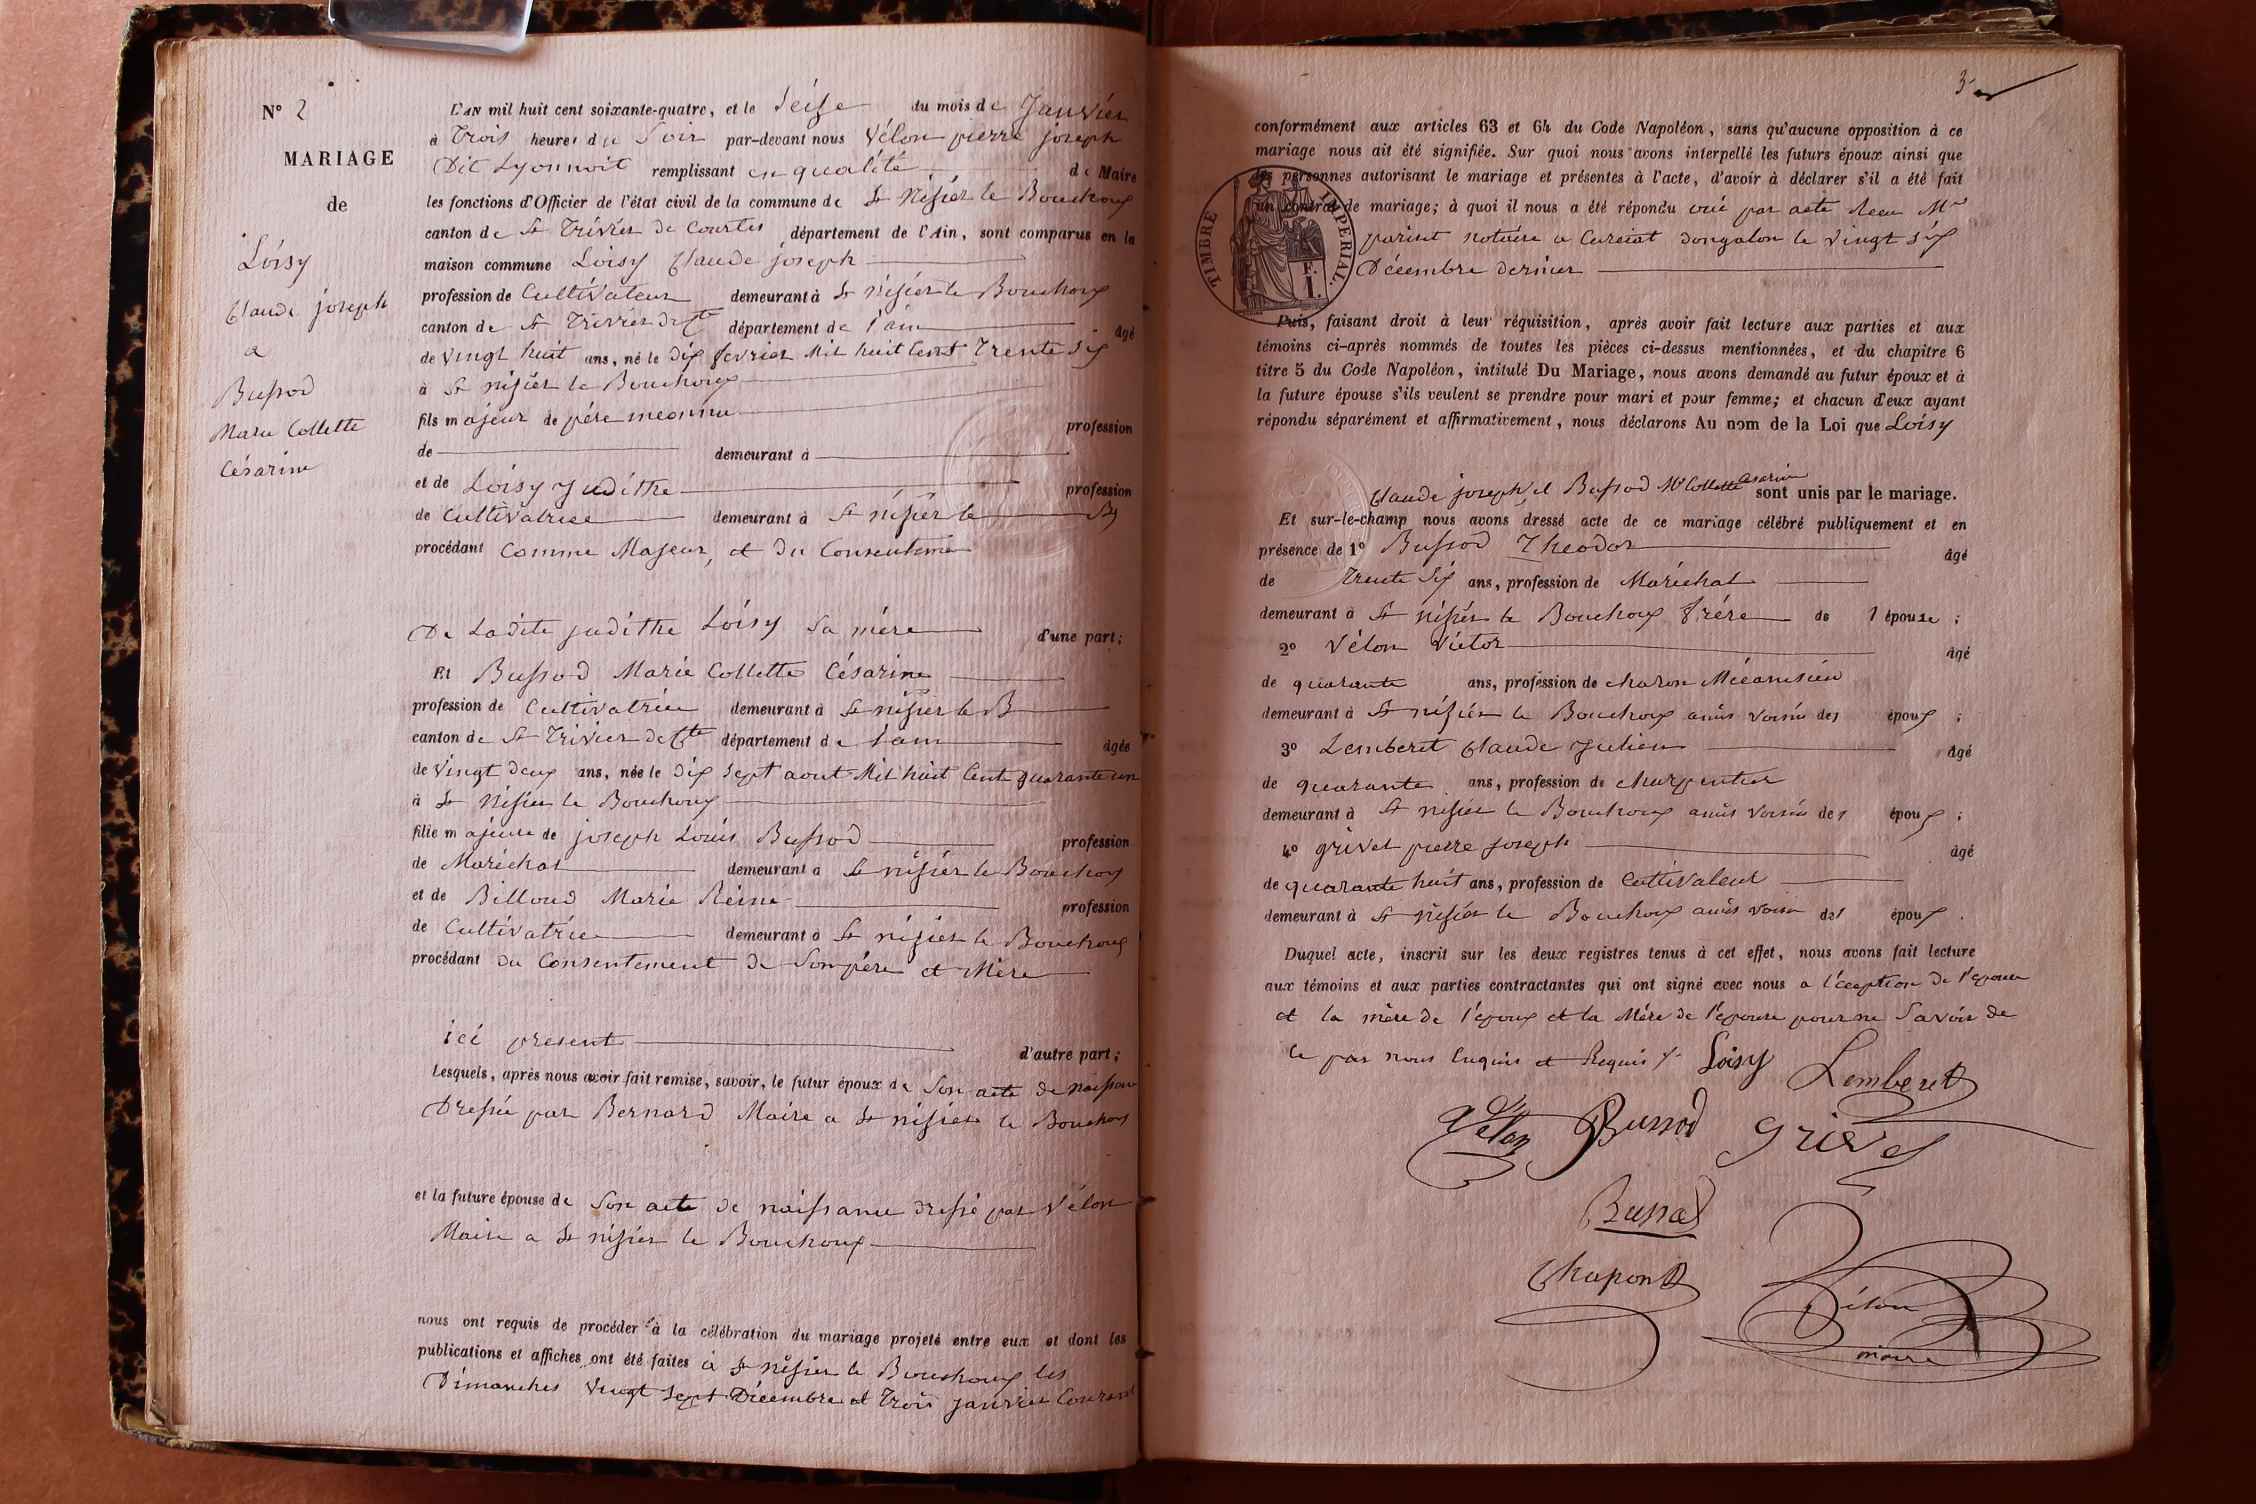 N° 2
MARIAGE
de
Loisy
Claude joseph
a
Bussod
Marie Collette
Césarine
L'AN mil huit cent soixante-quatre, et le Seize du mois de Janvier
à Trois heures du Soir par-devant nous Vélon pierre joseph
Dit Lyonnoit remplissant en qualité de Maire
les fonctions d'Officier de l'état civil de la commune de St Nizier le Bouchoux
canton de St Trivier de Courtes département de l'Ain, sont comparus en la
maison commune Loisy Claude joseph
profession de Cultivateur demeurant à St nizier le Bouchoux
canton de St Trivier de Cte département de l'ain âgé
de vingt huit ans, né le Dix fevrier Mil huit Cent Trente Six
à St nizier le Bouchoux
fils majeur de père inconnu profession
de demeurant à
et de Loisy Judithe profession
de Cultivatrice demeurant à St nizier le B
procédant Comme Majeur, et du Consenteme
De Ladite judithe Loisy Sa mère d'une part;
Et Bussod Marie Collette Césarine
profession de Cultivatrice demeurant à St nizier le B
canton de St Trivier de Cte département de l'ain âgée
de vingt deux ans, née le Dix Sept aout Mil huit Cent quarante un
à St Nizier le Bouchoux
fille majeure de joseph Louis Bussod profession
de Maréchal demeurant à St nizier le Bouchoux
et de Billoud Marie Reine profession
de Cultivatrice demeurant à St nizier le Bouchoux
procédant du Consentement de Son père et Mère
ici present d'autre part;
Lesquels, après nous avoir fait remise, savoir, le futur époux de Son acte de naissance
Dressée par Bernard Maire a St nizier le Bouchoux
et la future épouse de Son acte de naissance dressé par Vélon
Maire a St nizier le Bouchoux
nous ont requis de procéder à la célébration du mariage projeté entre eux et dont les
publications et affiches ont été faites à St nizier le Bouchoux les
Dimanches vingt Sept Décembre et Trois janvier Courant
3
conformément aux articles 63 et 64 du Code Napoléon, sans qu'aucune opposition à ce
mariage nous ait été signifiée. Sur quoi nous avons interpellé les futurs époux ainsi que
les personnes autorisant le mariage et présentes à l'acte, d'avoir à déclarer s'il a été fait
un contrat de mariage; à quoi il nous a été répondu oui par acte Recu Me
parint notaire a Cursiat dongalon le vingt Six
Décembre dernier
TIMBRE IMPÉRIAL.
F.
1.
Puis, faisant droit à leur réquisition, après avoir fait lecture aux parties et aux
témoins ci-après nommés de toutes les pièces ci-dessus mentionnées, et du chapitre 6
titre 5 du Code Napoléon, intitulé Du Mariage, nous avons demandé au futur époux et à
la future épouse s'ils veulent se prendre pour mari et pour femme; et chacun d'eux ayant
répondu séparément et affirmativement, nous déclarons Au nom de la Loi que Loisy
Claude joseph et Bussod Mie Collette Césarine sont unis par le mariage.
Et sur-le-champ nous avons dressé acte de ce mariage célébré publiquement et en
présence de 1° Bussod Theodor âgé
de Trente Six ans, profession de Maréchal
demeurant à St nizier le Bouchoux frère de l épouse;
2° Vélon Victor âgé
de quarante ans, profession de charon Mécanisien
demeurant à St nizier le Bouchoux amis voisin des époux;
3° Lemberet Claude Julien âgé
de quarante ans, profession de charpentier
demeurant à St nizier le Bouchoux amis voisin des époux;
4° grivet pierre joseph âgé
de quarante huit ans, profession de Cultivateur
demeurant à St nizier le Bouchoux amis voisin des époux.
Duquel acte, inscrit sur les deux registres tenus à cet effet, nous avons fait lecture
aux témoins et aux parties contractantes qui ont signé avec nous a l'éception de l'epouse
et la mère de l'époux et la Mère de l'epouse pour ne Savoir de
ce par nous Enquis et Requis
Loisy
Lemberet
Vélon
Bussod
Grivet
Bussod
Chapont
Vélon
maire